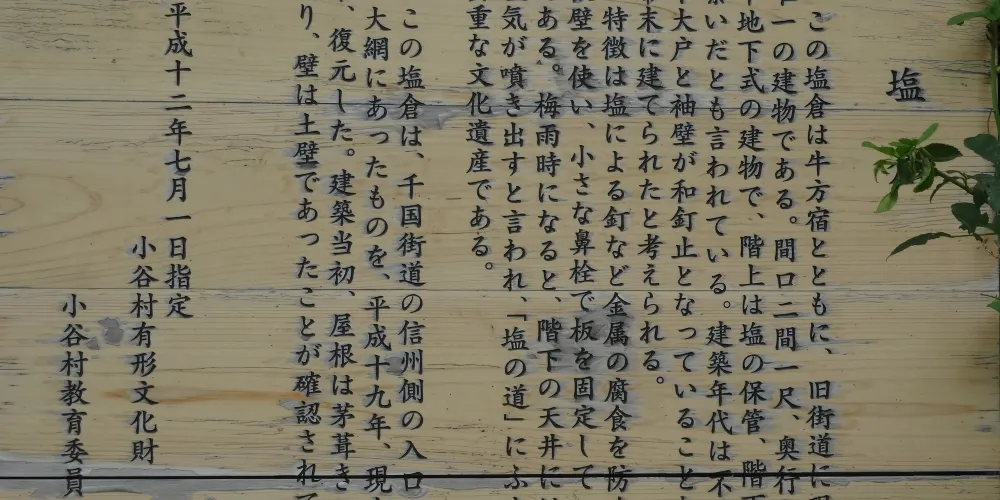 塩
この塩倉は牛方宿とともに、旧街道に
一の建物である。間口二間一尺、奥行
地下式の建物で、階上は塩の保管、階
いだとも言われている。建築年代は不
大戸と袖壁が和釘止となっていること
末に建てられたと考えられる。
特徴は塩による釘など金属の腐食を防
壁を使い、小さな鼻栓で板を固定して
ある。梅雨時になると、階下の天井に
気が噴き出すと言われ、「塩の道」にふ
重な文化遺産である。
この塩倉は、千国街道の信州側の入口
大網にあったものを、平成十九年、現
、復元した。建築当初、屋根は茅葺き
り、壁は土壁であったことが確認され
平成十二年七月一日指定
小谷村有形文化財
小谷村教育委員